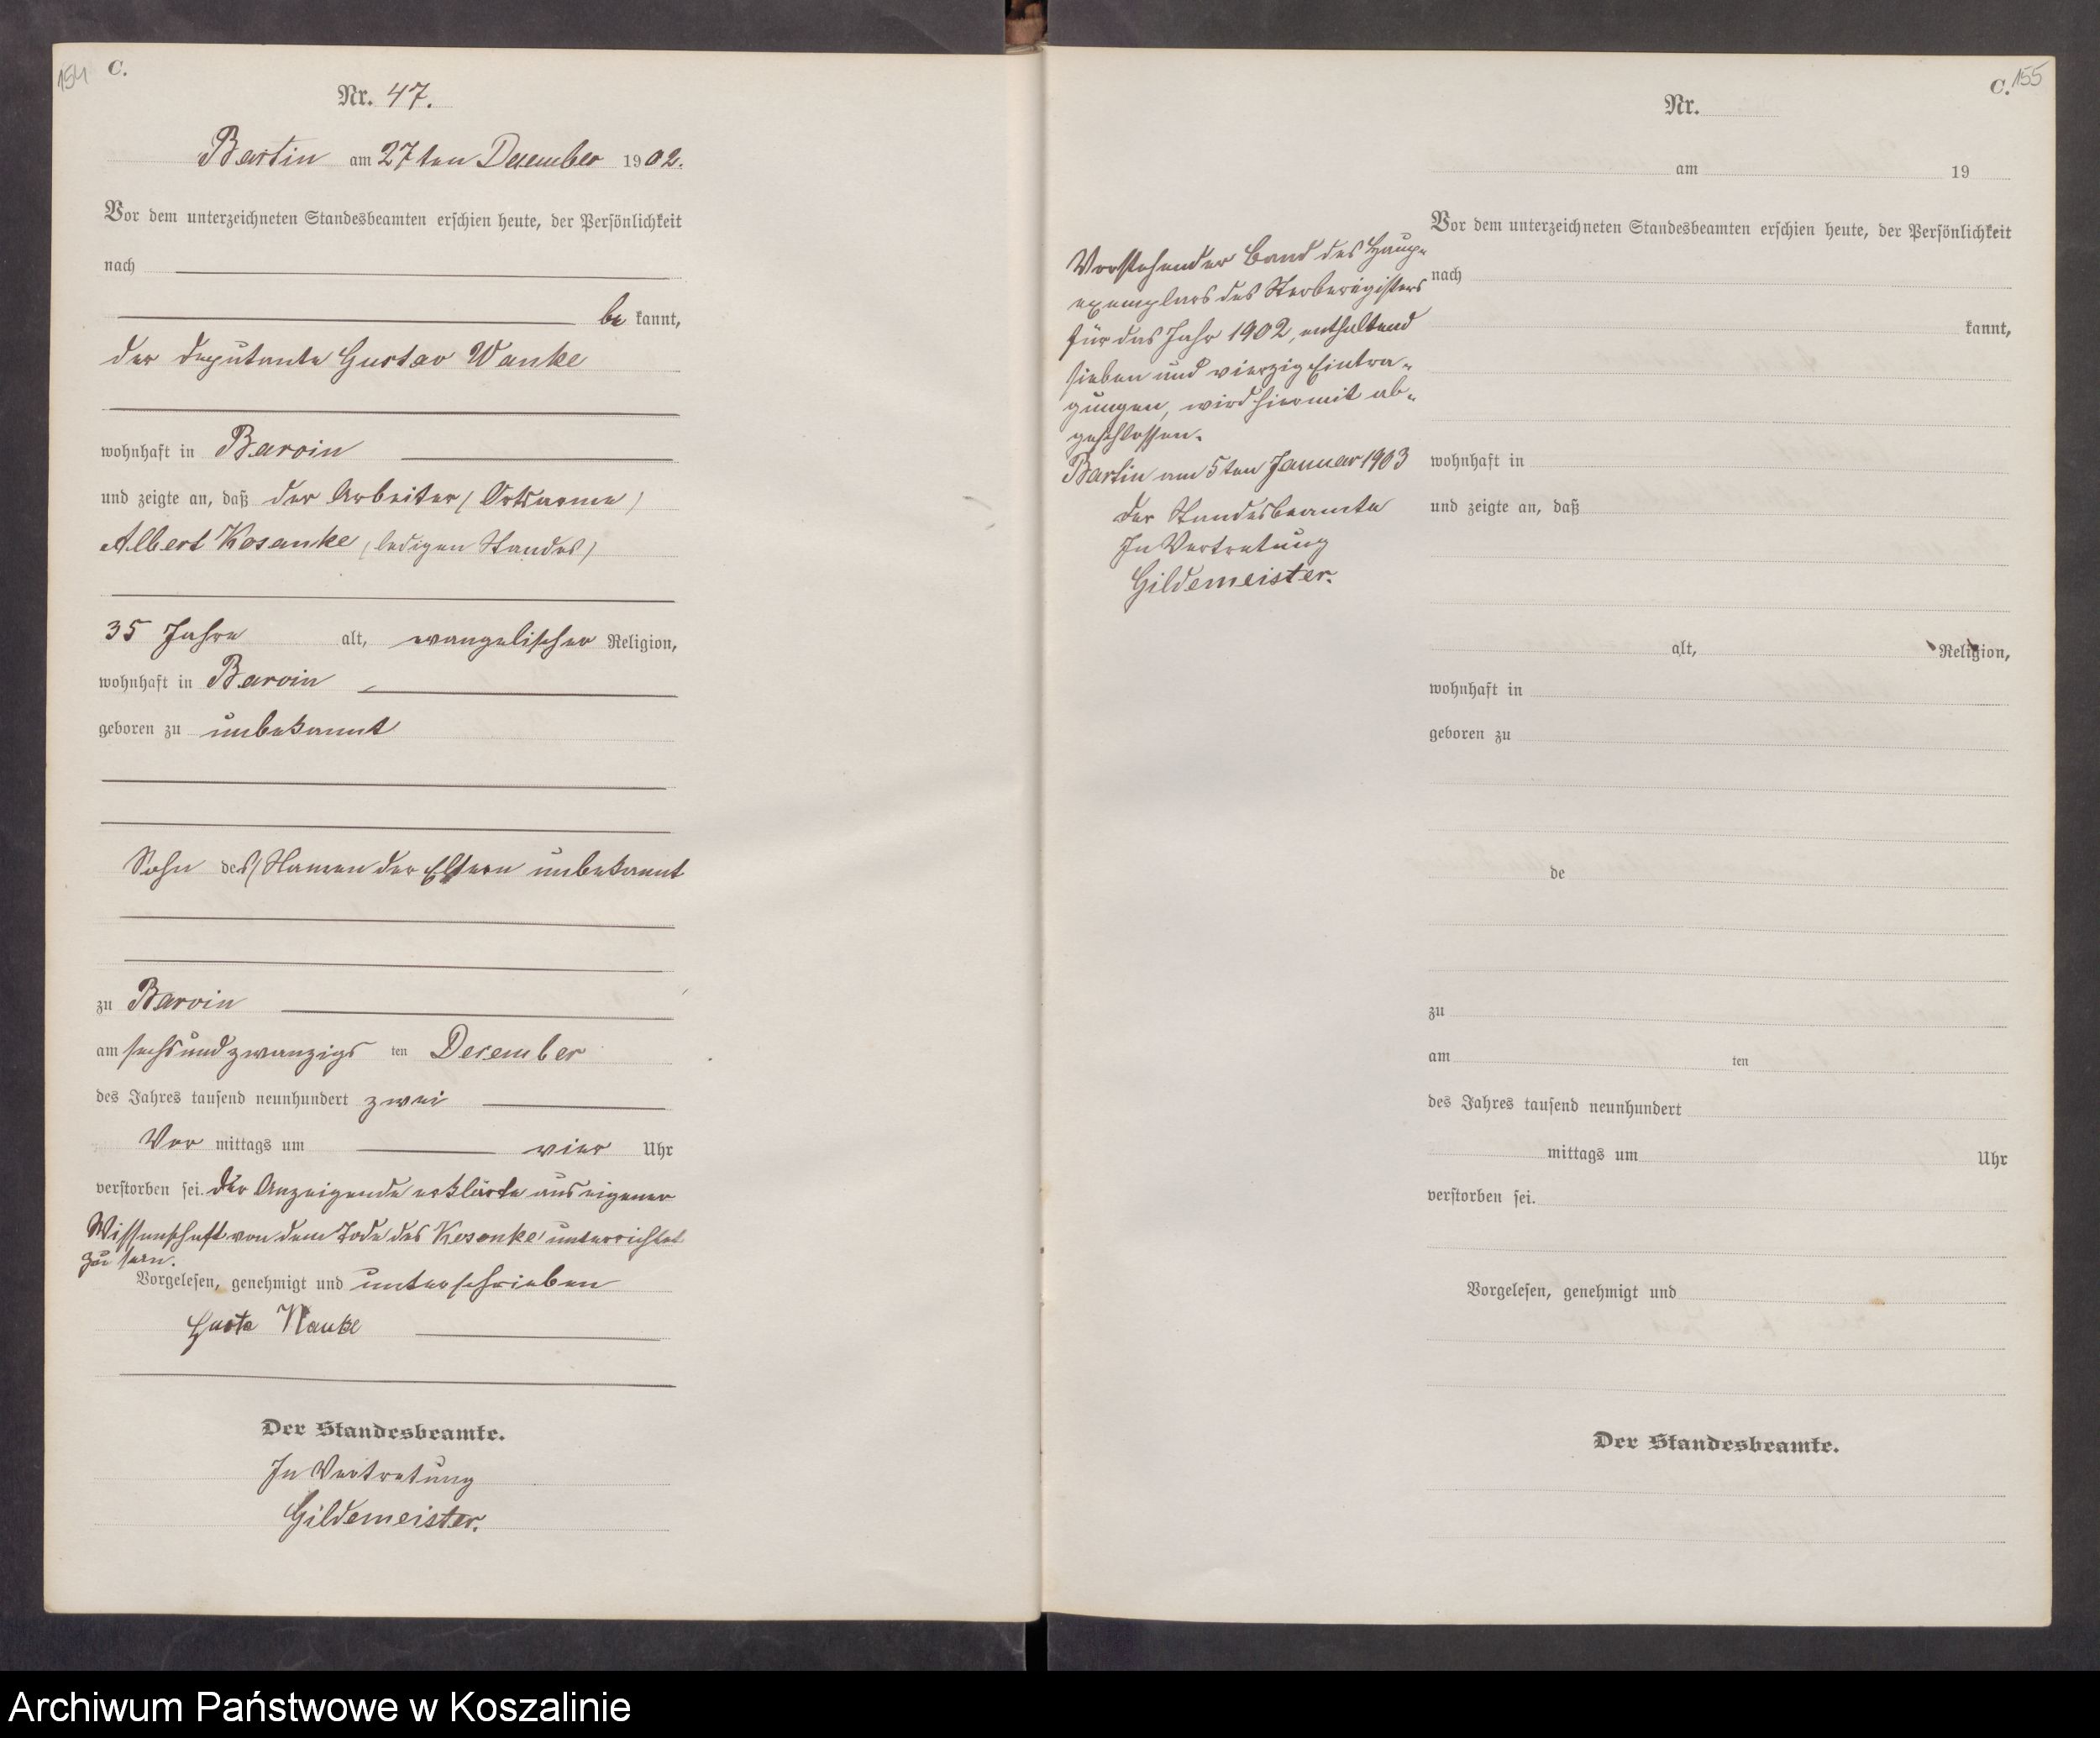 154
C.
Nr. 47.
Bartin am 27ten December 1902.
Vor dem unterzeichneten Standesbeamten erschien heute, der Persönlichkeit
nach
be kannt,
der Deputante Gustav Wanke
wohnhaft in Barvin
und zeigte an, daß der Arbeiter (Ortsarme)
Albert Kosanke (ledigen Standes)
35 Jahre alt, evangelischer Religion,
wohnhaft in Barvin
geboren zu unbekannt
Sohn des (Namen der Eltern unbekannt
zu Barvin
am sechsundzwanzigsten December
des Jahres tausend neunhundert zwei
Vor mittags um vier Uhr
verstorben sei. Der Anzeigende erklärte aus eigener
Wissenschaft von dem Tode des Kosanke unterrichtet
zu sein.
Vorgelesen, genehmigt und unterschrieben
Wanke
Der Standesbeamte.
In Vertretung
Gildemeister.
C. 155
Nr.
am 19
Vor dem unterzeichneten Standesbeamten erschien heute, der Persönlichkeit
nach
kannt,
wohnhaft in
und zeigte an, daß
alt, Religion,
wohnhaft in
geboren zu
de
zu
am ten
des Jahres tausend neunhundert
mittags um Uhr
verstorben sei.
Vorgelesen, genehmigt und
Der Standesbeamte.
Vorstehender Band des Haup-
exemplars des Sterberegisters
für das Jahr 1902, enthaltend
sieben und vierzig Eintra-
gungen, wird hiermit ab-
geschlossen.
Bartin am 5ten Januar 1903
Der Standesbeamte
In Vertretung
Gildemeister.
Archiwum Państwowe w Koszalinie